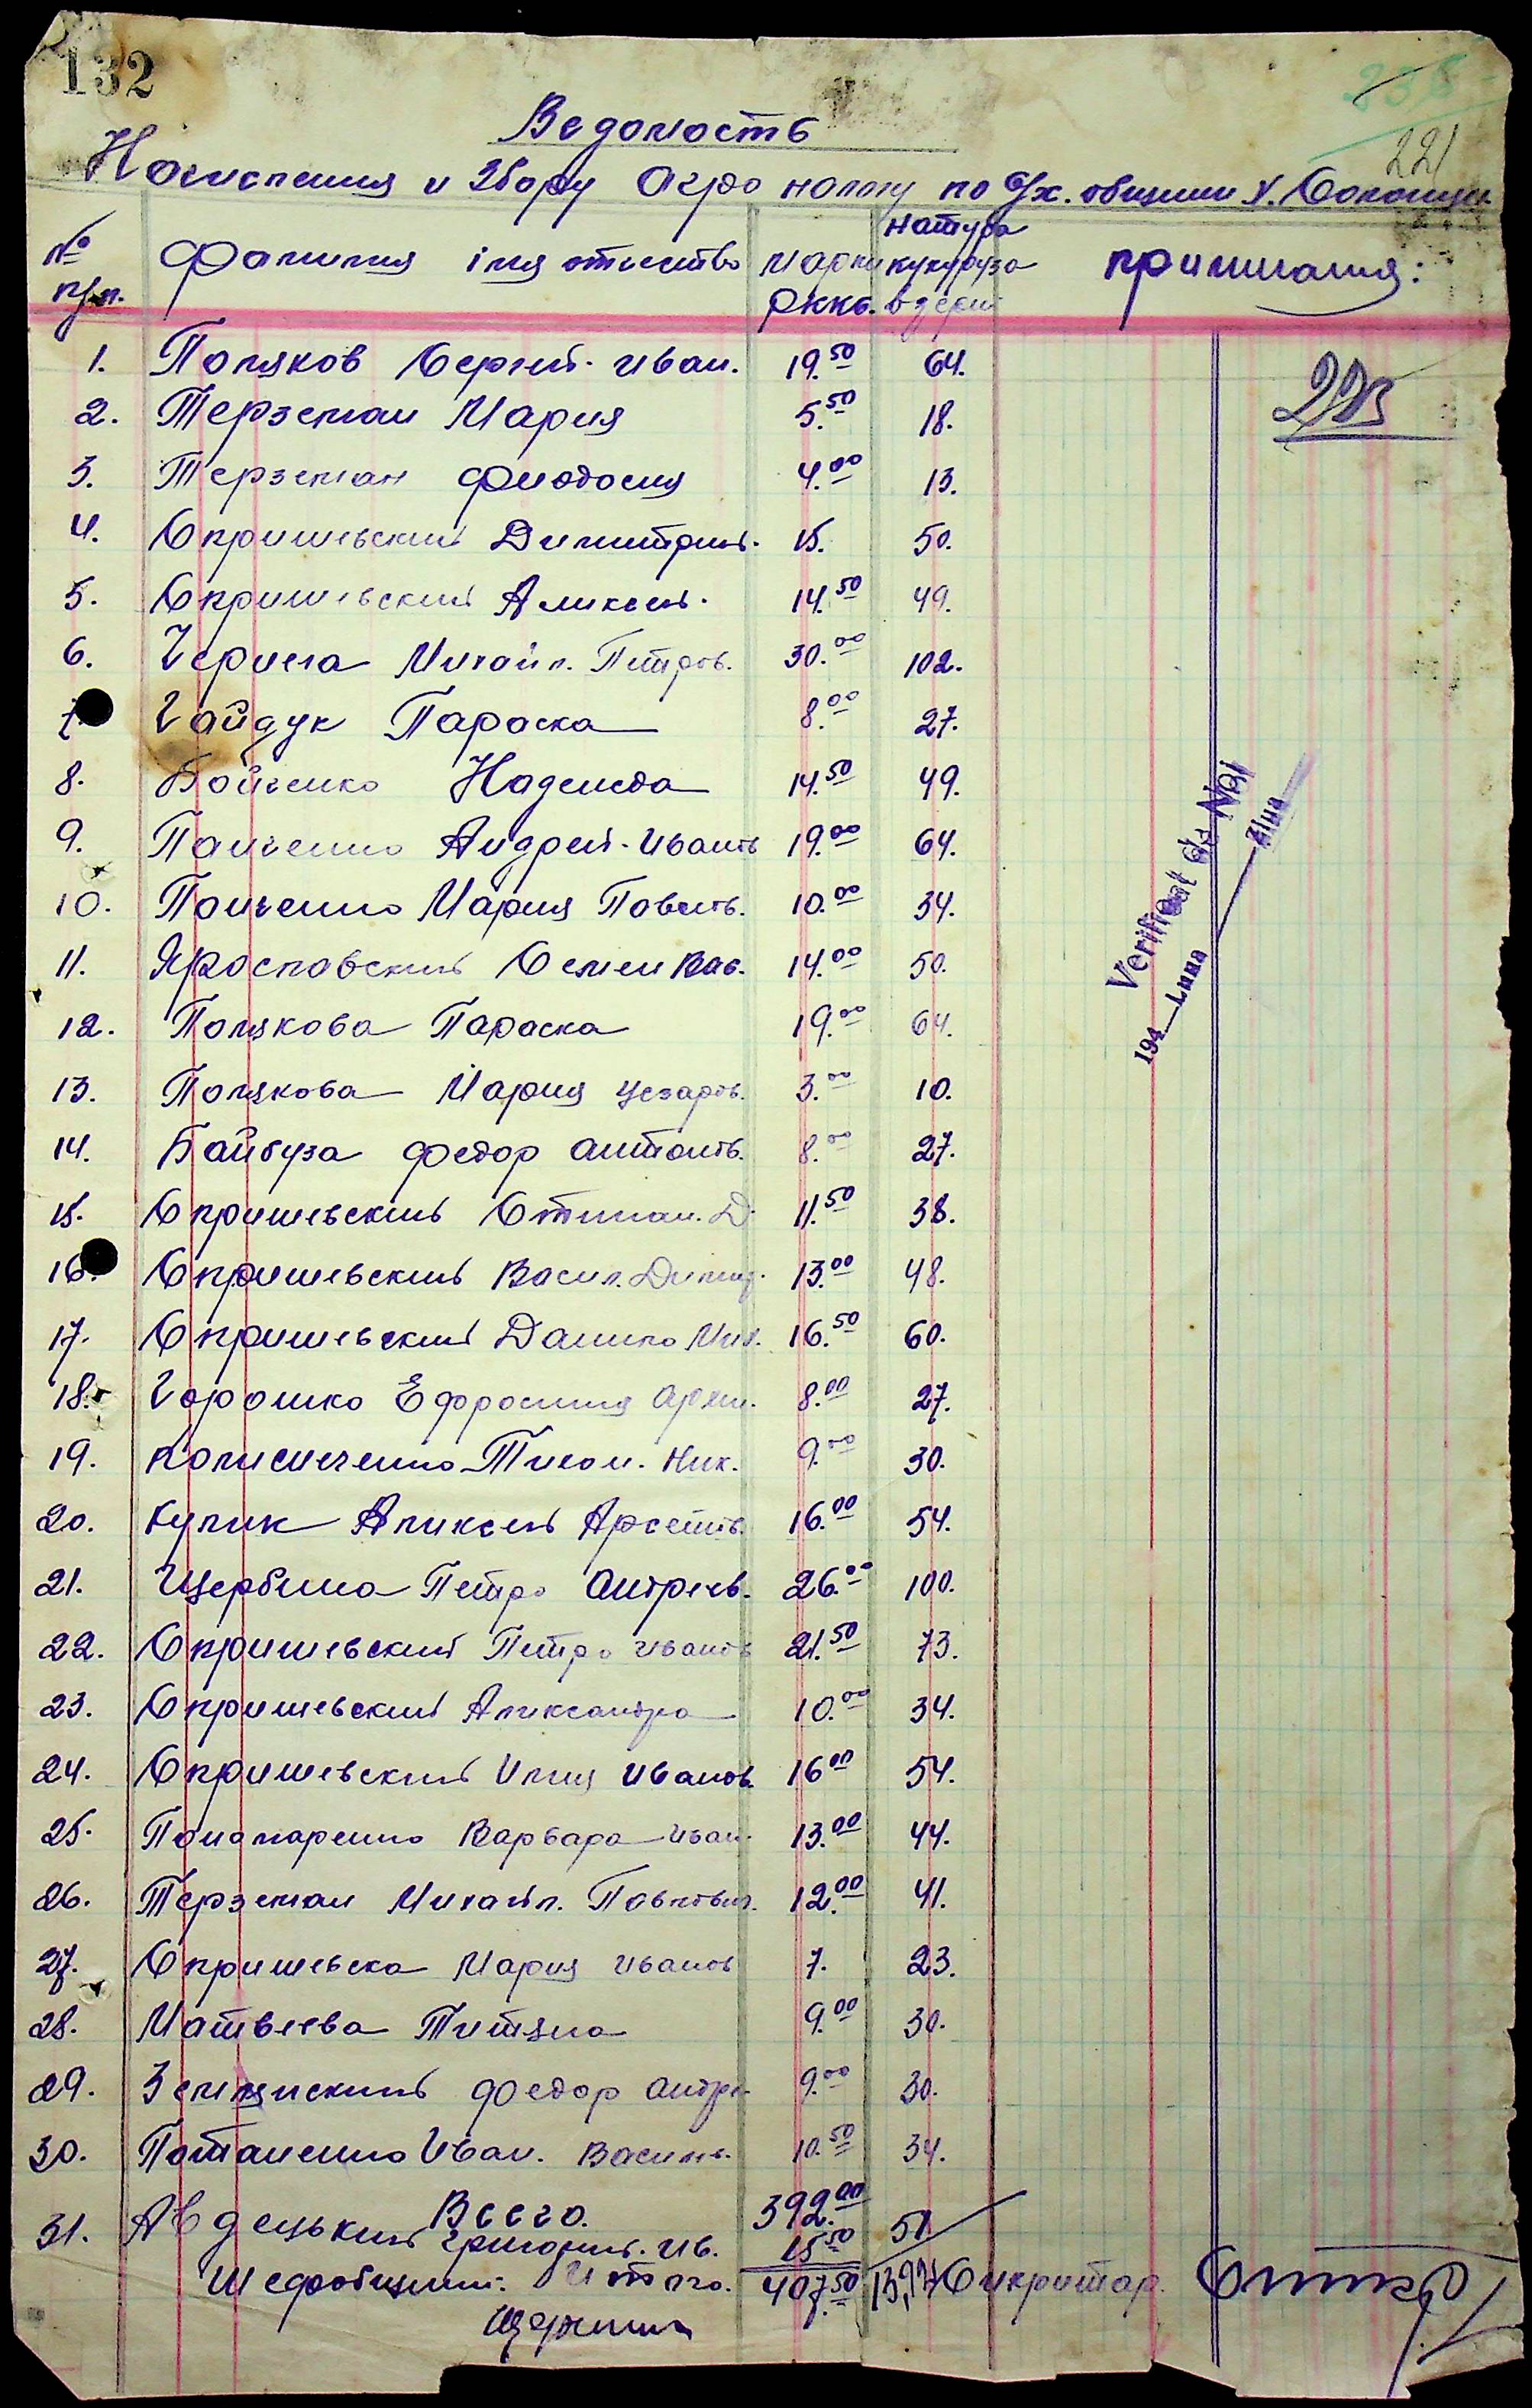 132
235
221
Ведомость
Начисления и Збору Агро налогу по с/х. общини х. Солонци
натура
№ Фамилия імя отчество Марки кукуруза примичания:
п/п. РККС. в
1. Поляков Сергей. Иван. 19.50 64.
273
2. Терземан Мария 5.50 18.
3. Терземан Фиодосия 4.00 13.
4. Спришевский Димитрий. 15. 50.
5. Спришевский Аликсей. 14.50 49.
6. Чернега Михайл. Петров. 30.00 102.
7. Гайдук Параска 8.00 27.
8. Бойченко Надежда 14.50 49.
9. Панченко Андрей. Иванов 19.00 64.
10. Панченко Мария Павлов. 10.00 34.
11. Ярославский Семен Вас. 14.00 50.
12. Полякова Параска 19.00 64.
13. Полякова Мария Цезаров. 3.00 10.
14. Байбуза Федор Антонов. 8.00 27.
15. Спришевский Стипан. Д. 11.50 38.
16. Спришевский Васил. Димит. 13.00 48.
17. Спришевский Данило Мих. 16.50 60.
18. Горошко Ефросиния Архи. 8.00 27.
19. Колисниченко Тихон. Ник. 9.00 30.
20. Кулик Аликсей Арсентв. 16.00 54.
21. Щербина Петро Андреев. 26.00 100.
22. Спришевский Петро Иванов 21.50 73.
23. Спришевский Александра 10.00 34.
24. Спришевский Илия Иванов. 16.00 54.
25. Понамаренко Варвара Иван. 13.00 44.
26. Терземан Михайл. Павлович. 12.00 41.
27. Спришевска Мария Иванов 7. 23.
28. Матвеева Титяна 9.00 30.
29. Землянский Федор Андре. 9.00 30.
30. Потапенко Иван. Василь. 10.50 34.
Всего. 392.00
31. Авдецький Григорий. Ив. 15.50 51
Шеф общини: Итого. 407.50 Сикритар.
Verificat de Noi
194__ Luna ___ Ziua